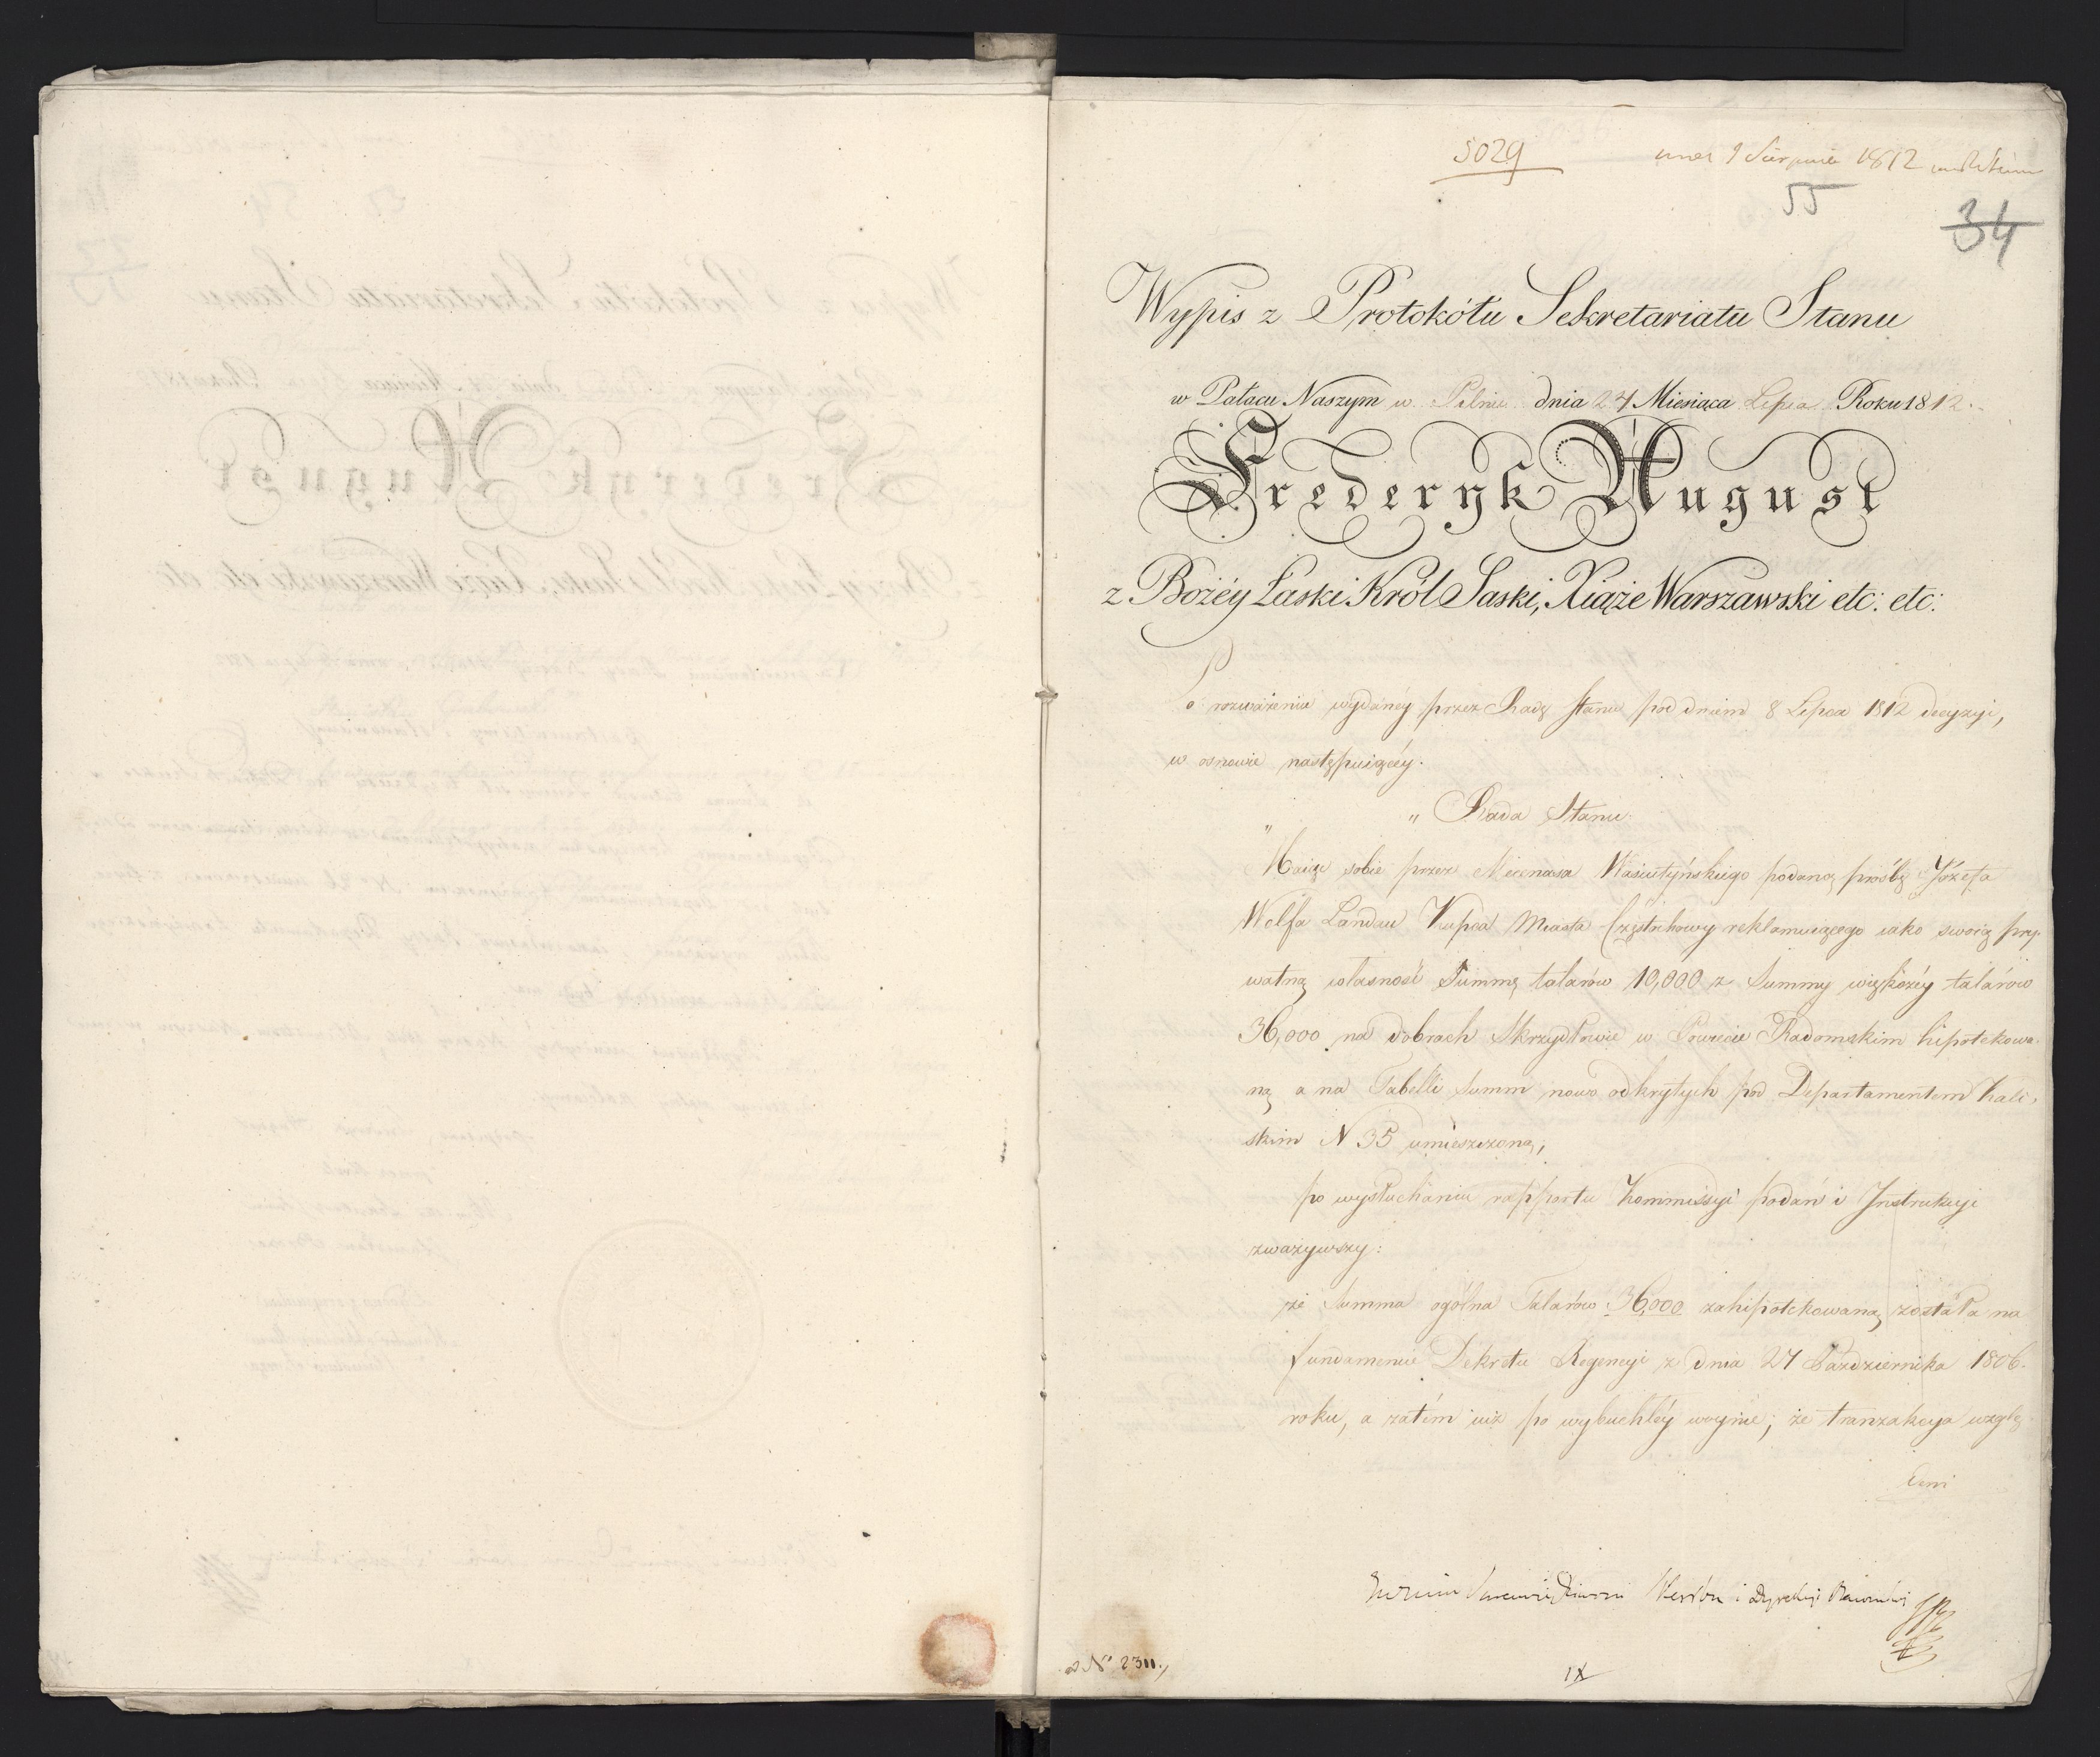 5029
9 Sierpnia 1812
55
34
Wypis z Protokółu Sekretariatu Stanu
w Pałacu Naszym w Pilnic dnia 24 Miesiąca Lipca Roku 1812.
Fryderyk August
z Bożéy Łaski Król Saski, Xiąże Warszawski etc: etc:
Po rozważeniu wydanéy przez Radę Stanu pod dniem 8 Lipca 1812 decyzyi,
w osnowie następuiącéy.
„ Rada Stanu
„ Maiąc sobie przez Mecenasa Wasiutyńskiego podaną prośbę Józefa
Wolfa Landau Kupca Miasta Częstochowy reklamuiącego iako swoią pry-
watną własność Summę talarów 10,000 z Summy większéy talarów
36,000 na dobrach Skrzydłowie w Powiecie Radomskim hipotekowa-
ną a na Tabelli Summ nowo odkrytych pod Departamentem Kali-
skim N 35 umieszczoną,
po wysłuchaniu rapportu Kommissyi podań i Instrukcyi
zważywszy:
że Summa ogólna Talarów 36,000 zahipotekowaną została na
fundamencie Dekretu Regencyi z dnia 27 Października 1806.
roku, a zatém iuż po wybuchłéy woynie; że tranzakcya wzglę-
dem
i Dyrekcyi
N° 2311.